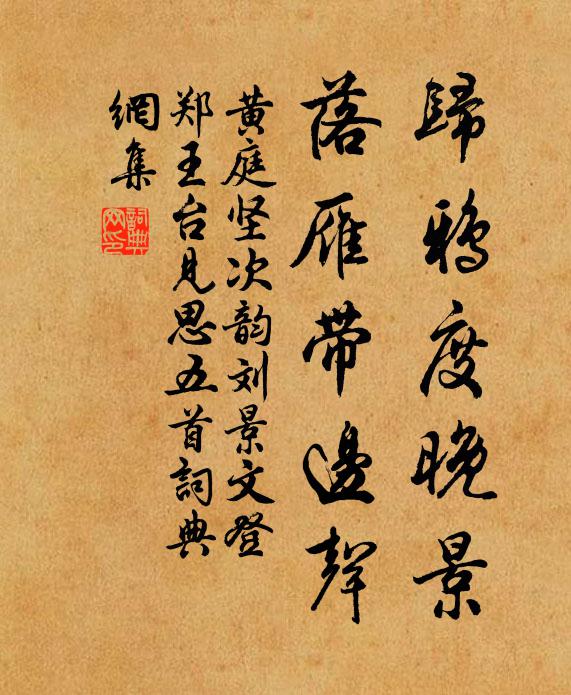 歸鴉度晚景
落雁帶邊聲
黃庭坚次韵刘景文登
郑王台見思五首詞典
網集
詞典網印